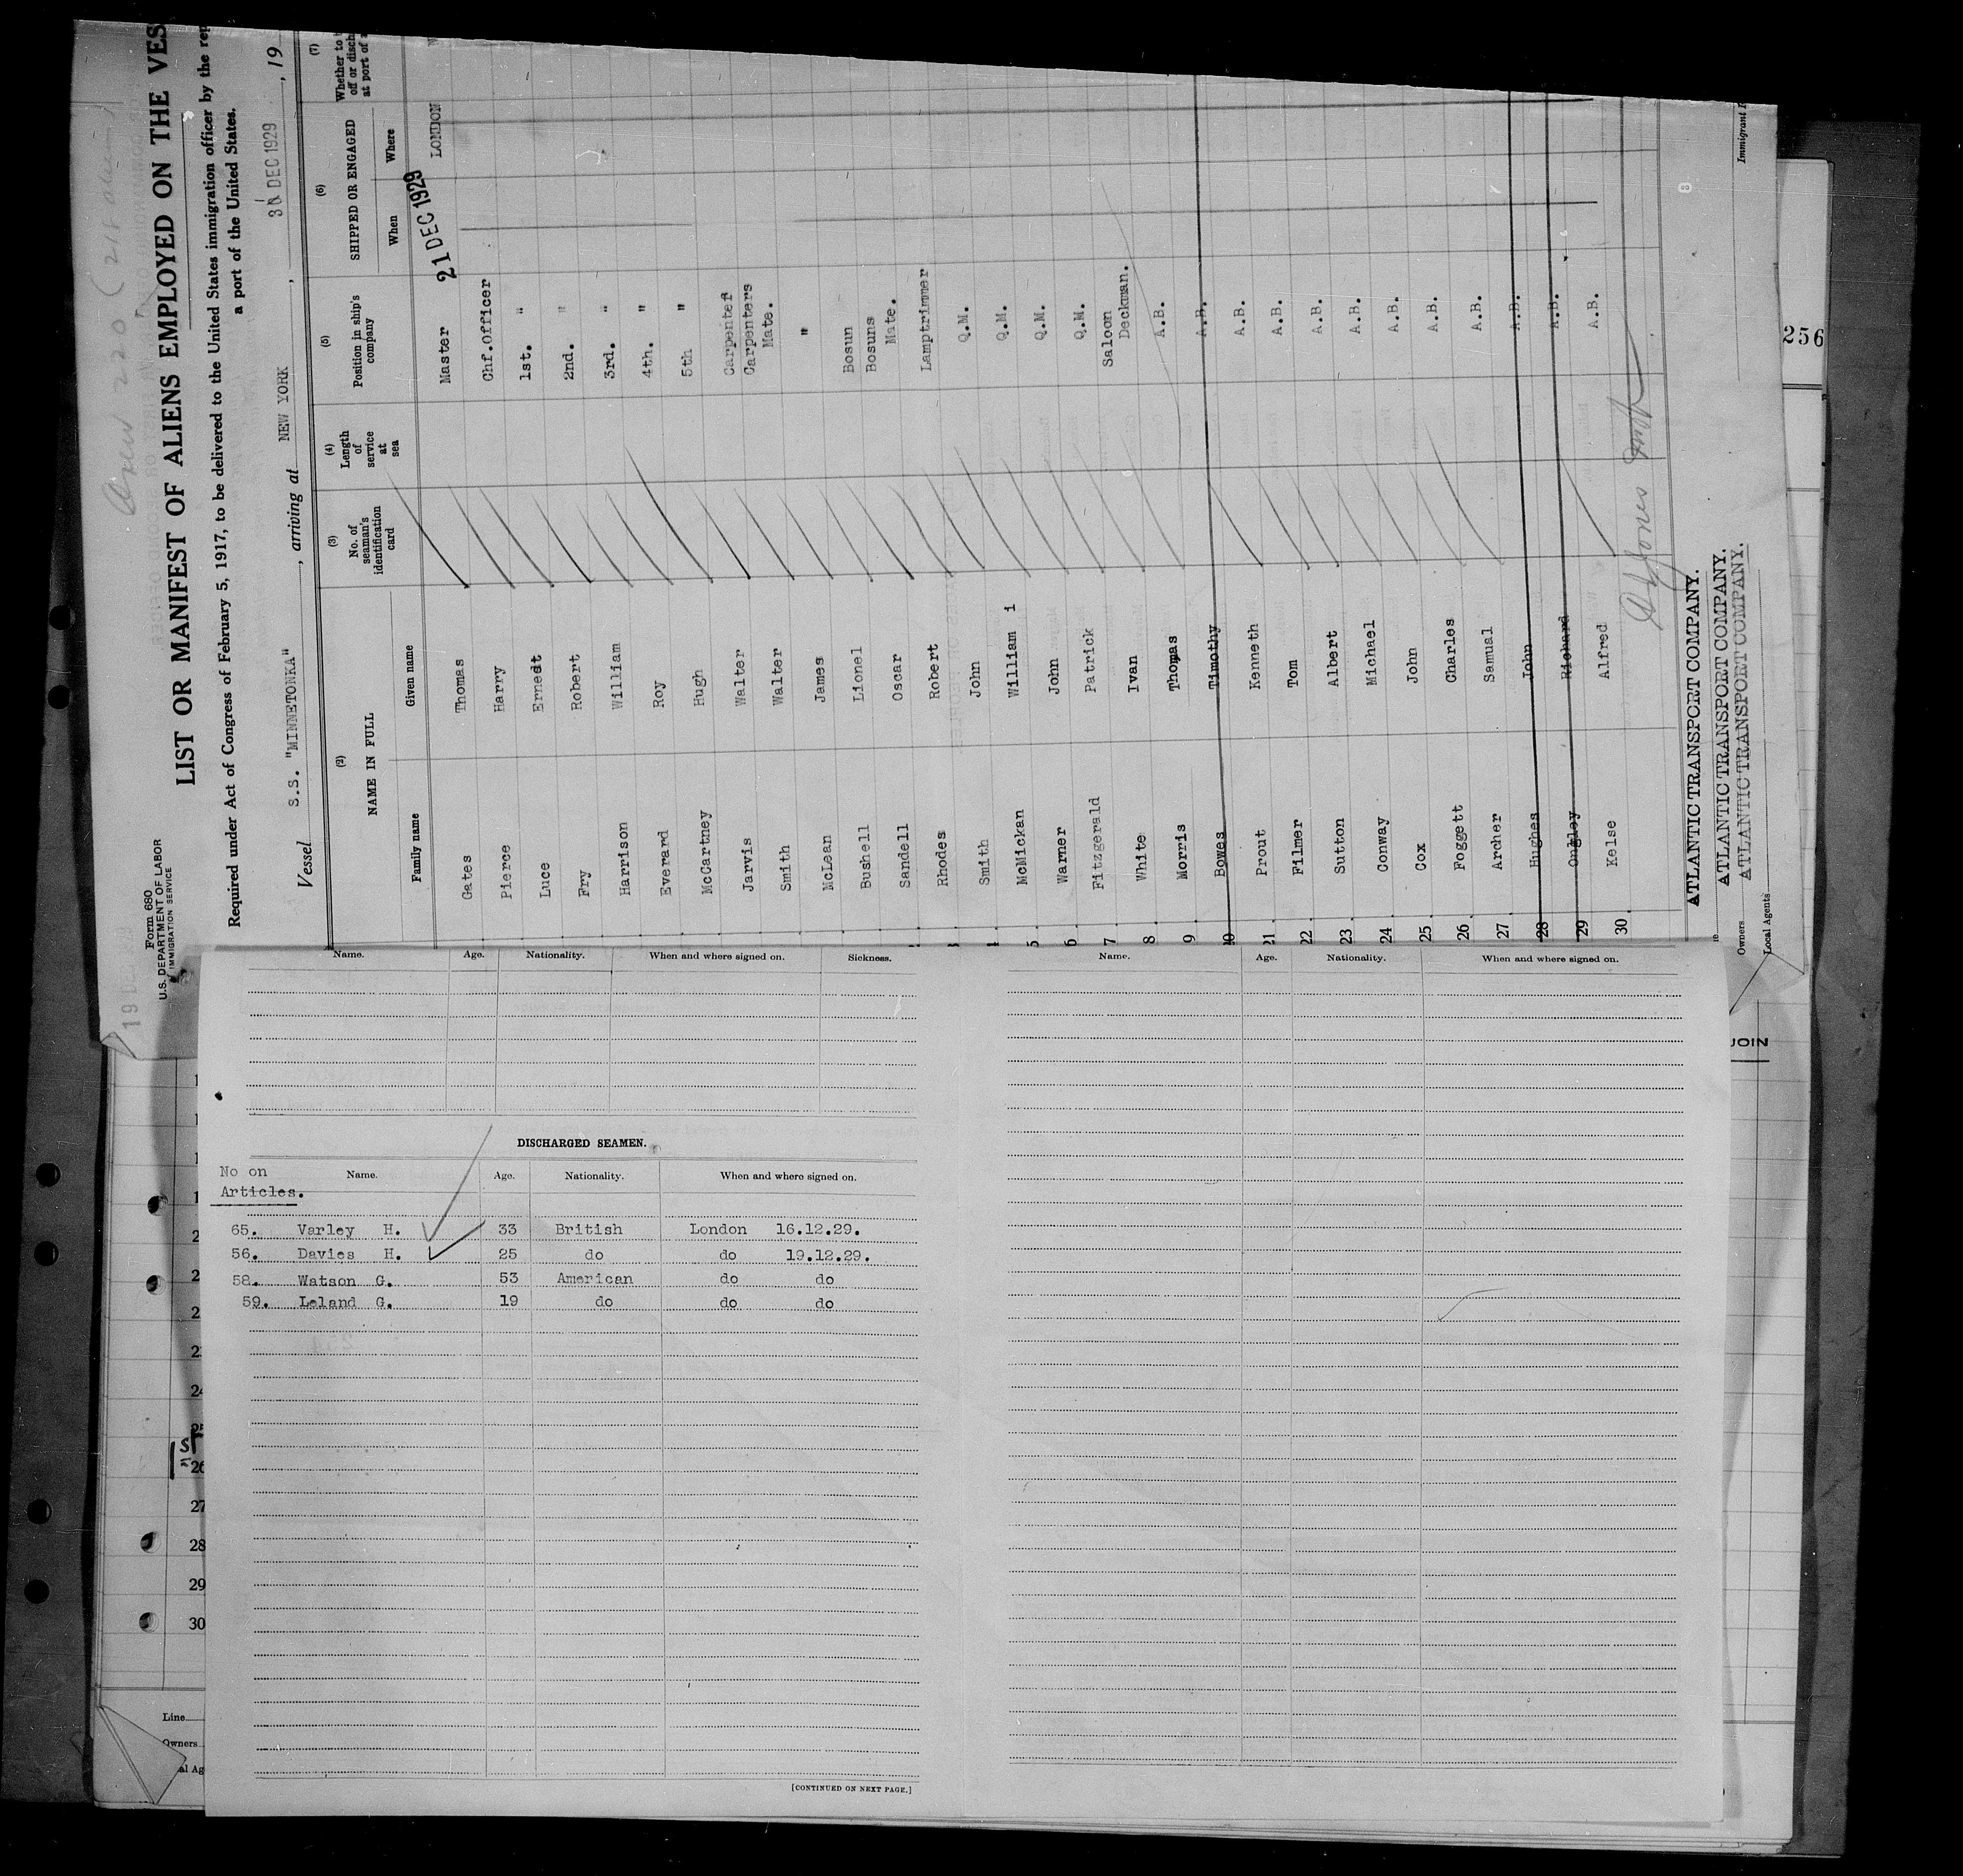 Form 680
U.S. DEPARTMENT OF LABOR
IMMIGRATION SERVICE
LIST OR MANIFEST OF ALIENS EMPLOYED ON THE VES
Required under Act of Congress of February 5, 1917, to be delivered to the United States immigration officer by the rep
a port of the United States.
Vessel S.S. "MINNETONKA" , arriving at NEW YORK , DEC 1929 , 19
(2) (3) (4) (5) (6) (7)
NAME IN FULL No. of seaman's identification card Length of service at sea Position in ship's company SHIPPED OR ENGAGED Whether to
off or disch
at port of a
Family name Given name When Where
Gates Thomas Master 21 DEC 1929 LONDON
Pierce Harry Chf.Officer
Luce Ernest 1st. "
Fry Robert 2nd. "
Harrison William 3rd. "
Everard Roy 4th. "
McCartney Hugh 5th "
Jarvis Walter Carpenter
Smith Walter Carpenters Mate.
McLean James "
Bushell Lionel Bosun
Sandell Oscar Bosuns Mate.
Rhodes Robert Lamptrimmer
Smith John Q.M.
5 McMicken William i Q.M.
6 Warner John Q.M.
7 Fitzgerald Patrick Q.M.
8 White Ivan Saloon Deckman.
9 Morris Thomas A.B.
20 Bowes Timothy A.B.
21 Prout Kenneth A.B.
22 Filmer Tom A.B.
23 Sutton Albert A.B.
24 Conway Michael A.B.
25 Cox John A.B.
26 Foggett Charles A.B.
27 Archer Samual A.B.
28 Hughes John A.B.
29 Richard A.B.
30 Kelse Alfred A.B.
ATLANTIC TRANSPORT COMPANY.
ATLANTIC TRANSPORT COMPANY.
Owners ATLANTIC TRANSPORT COMPANY.
Local Agents
Immigrant
256
JOIN
Name. Age. Nationality. When and where signed on. Sickness.
DISCHARGED SEAMEN.
No on
Articles.
Name. Age. Nationality. When and where signed on.
65. Varley H. 33 British London 16.12.29.
56. Davies H. 25 do do 19.12.29.
58. Watson G. 53 American do do
59. Leland G. 19 do do do
[CONTINUED ON NEXT PAGE.]
Name. Age. Nationality. When and where signed on.
24
26
27
28
29
30
Line
Owners
al Ag